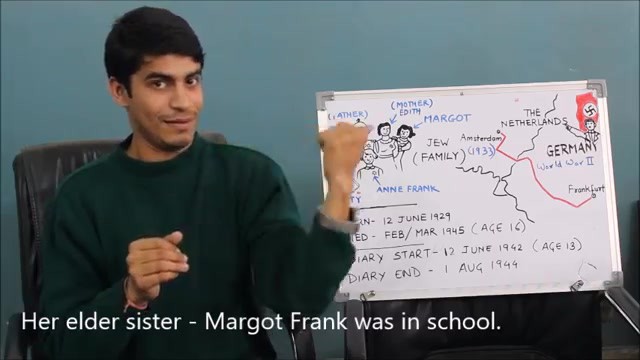 (FATHER)
(MOTHER)
EDITH
MARGOT
JEW
(FAMILY)
(1933)
ANNE FRANK
THE
NETHERLANDS
Amsterdam
GERMANY
World War II
Frankfurt
12 JUNE 1929
FEB/MAR 1945 (AGE 16)
DIARY START - 12 JUNE 1942 (AGE 13)
DIARY END - 1 AUG 1944
Her elder sister - Margot Frank was in school.